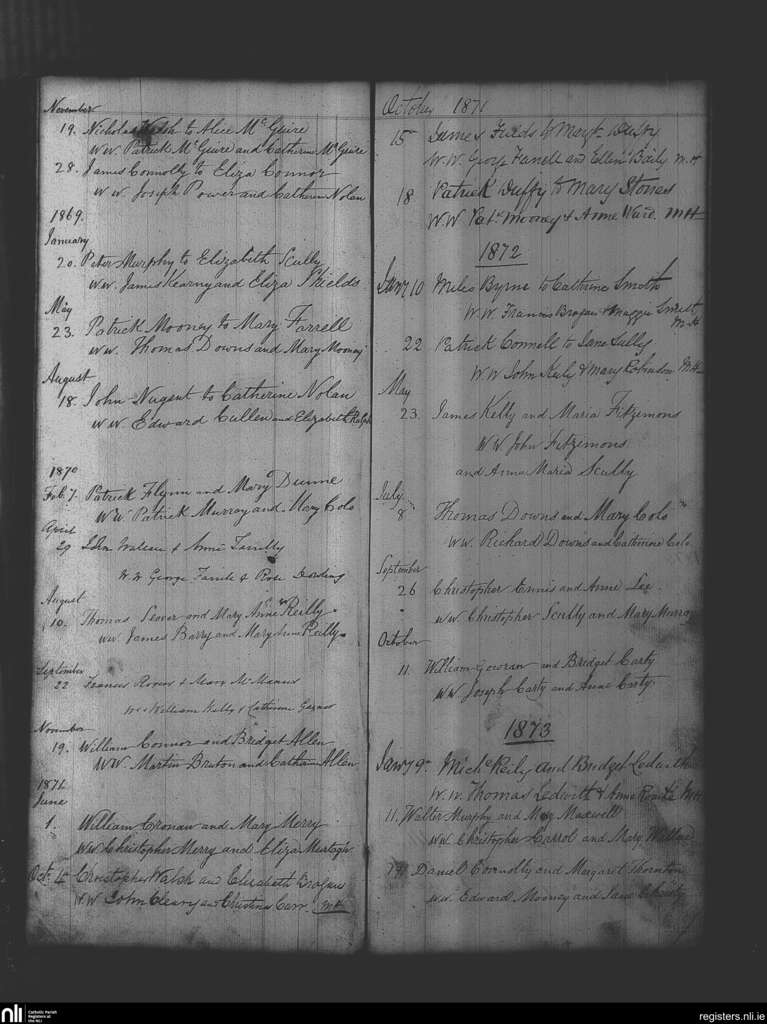 November
19. Nicholas Walsh to Alice McGuire
WW. Patrick McGuire and Catherine McGuire
28. James Connolly to Eliza Connor
W W Joseph Power and Catherine Nolan
1869.
January
20. Peter Murphy to Elizabeth Scully
WW. James Kearny and Eliza Shields
May
23. Patrick Mooney to Mary Farrell
WW. Thomas Downs and Mary Mooney
August
18. John Nugent to Catherine Nolan
WW. Edward Cullen and Elizabeth Ralph
1870
Feb. 7. Patrick Flynn and Mary Dunne
WW. Patrick Murray and Mary Colo
April
29 & Anne
W. W George & Rose
August
10. Thomas and Mary Anne Reilly
WW. James Barry and Mary Anne Reilly
September
22 Francis & Mary McManus
William Kelly & Catherine
November
19. William Connor and Bridget Allen
WW. Martin Bruton and Catherine Allen
1871
June
1. William Cronan and Mary Merry
WW Christopher Merry and Eliza Murtagh
Oct. 15 Christopher Walsh and Elizabeth Brogan
W W John Cleary and Christina Carr. MH
October 1871
15 James Fields to Mary
W. W. George Farrell and Ellen Baily M. H
18 Patrick Duffy to Mary Stones
WW Patk Mooney & Anne Ward. MH
1872
Jany 10 Miles Byrne to Catherine Smith
W. W. Francis Brogan & Maggie
M. H
22 Patrick Connell to Jane Tully
WW John & Mary Robinson MH
May
23. James Kelly and Maria Fitzimons
WW. John Fitzimons
and Anna Maria Scully
July
8 Thomas Downs and Mary Colo
WW. Richard Downs and Catherine Colo.
September
26 Christopher Ennis and Anne Lee.
WW. Christopher Scully and Mary Murray
October
11. William Gowran and Bridget Carty
WW Joseph Carty and Anne Carty
1873
Jany 9th Michl Reily and Bridget Ledwith
W. W. Thomas Ledwith & Anne Rourke MH
11. Walter Murphy and Mary Maxwell
WW Christopher Carrol and Mary Wallace
Daniel Connolly and Margaret Thornton
WW. Edward Mooney and Jane
nli
Catholic Parish
Registers at
the NLI
registers.nli.ie